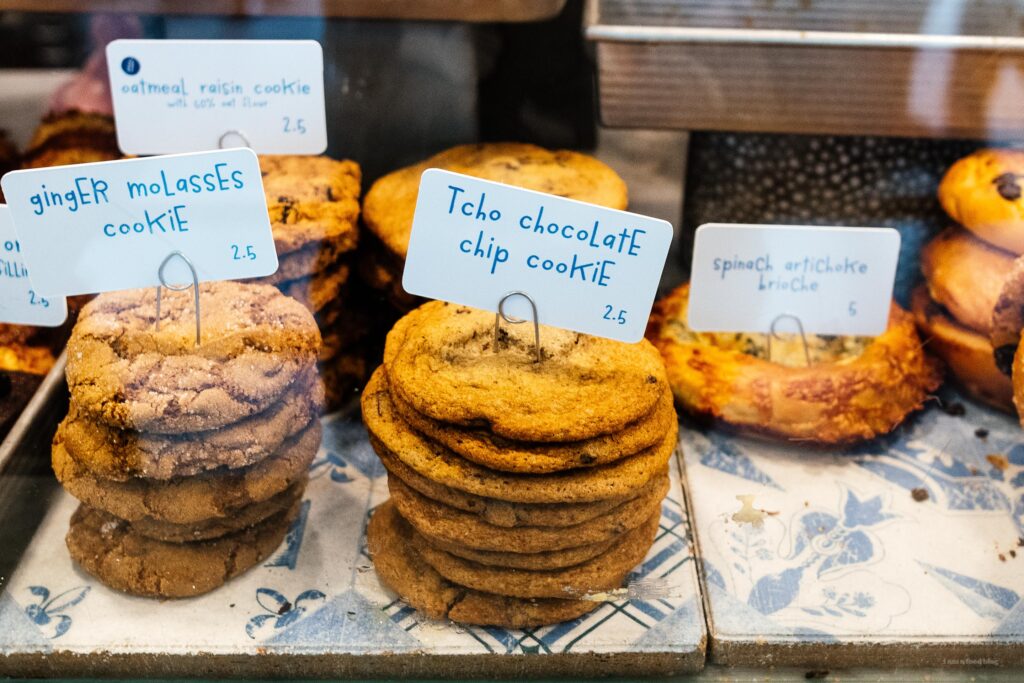 oatmeal raisin cookie
with 60% oat flour
2.5
gingER molassEs
cookiE
2.5
on
filli
2.5
Tcho chocolatE
chip cookiE
2.5
spinach artichoke
brioche
5
I am a food blog